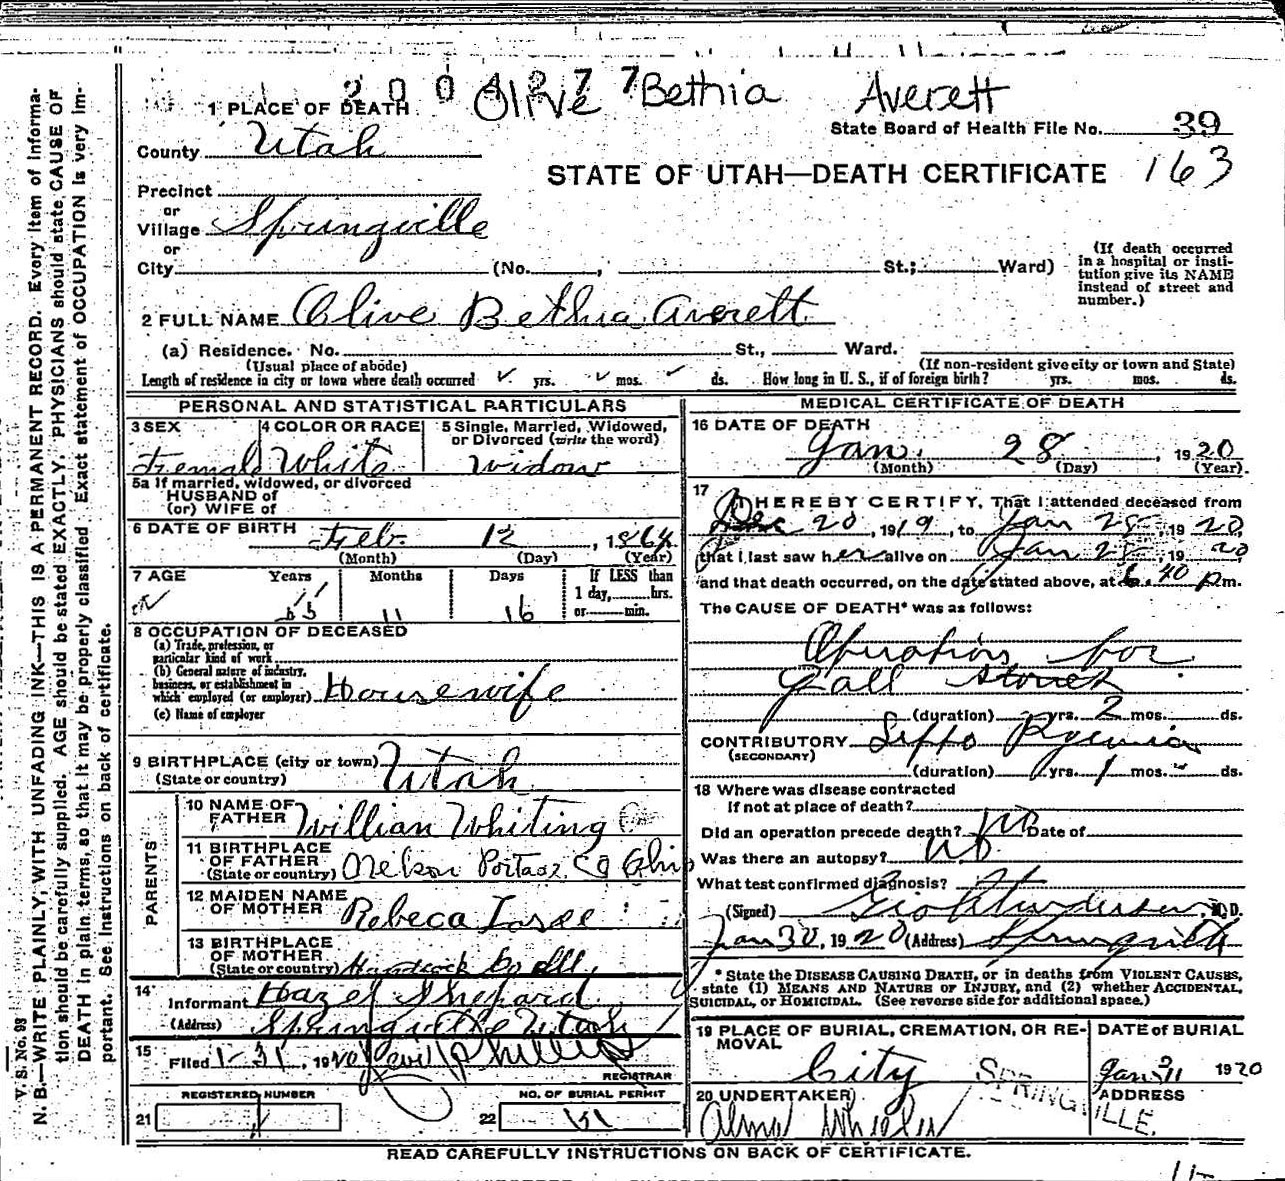 2004277
Olive Bethia Averett
1 PLACE OF DEATH
State Board of Health File No. 39
County Utah
STATE OF UTAH—DEATH CERTIFICATE 163
Precinct
or
Village Springville
or
City (No. , St.; Ward)
(If death occurred in a hospital or insti-
tution give its NAME
instead of street and
number.)
2 FULL NAME Olive Bethia Averett
(a) Residence. No. St., Ward.
(Usual place of abode) (If non-resident give city or town and State)
Length of residence in city or town where death occurred yrs. mos. ds. How long in U. S., if of foreign birth? yrs. mos. ds.
PERSONAL AND STATISTICAL PARTICULARS
3 SEX Female
4 COLOR OR RACE White
5 Single, Married, Widowed,
or Divorced (write the word)
Widow
5a If married, widowed, or divorced
HUSBAND of
(or) WIFE of
6 DATE OF BIRTH Feb. 12, 1864
(Month) (Day) (Year)
7 AGE Years 55 Months 11 Days 16
If LESS than
1 day, hrs.
or min.
8 OCCUPATION OF DECEASED
(a) Trade, profession, or
particular kind of work
(b) General nature of industry,
business, or establishment in
which employed (or employer) Housewife
(c) Name of employer
9 BIRTHPLACE (city or town) Utah
(State or country)
PARENTS
10 NAME OF
FATHER Willian Whiting
11 BIRTHPLACE
OF FATHER
(State or country) Nelson Portage Co Ohio
12 MAIDEN NAME
OF MOTHER Rebeca
13 BIRTHPLACE
OF MOTHER
(State or country) Handcock Co Ill,
14
Informant Hazel Shepard
(Address) Springville Utah
15
Filed 1-31, 1920 Phillips
REGISTRAR
REGISTERED NUMBER
21
NO. OF BURIAL PERMIT
22
MEDICAL CERTIFICATE OF DEATH
16 DATE OF DEATH
Jan. 28, 1920
(Month) (Day) (Year)
17
I HEREBY CERTIFY, That I attended deceased from
Dec 20, 1919, to Jan 28, 1920,
that I last saw her alive on Jan 28, 1920
and that death occurred, on the date stated above, at 6.40 p m.
The CAUSE OF DEATH* was as follows:
Operation for
Gall Stones
(duration) yrs. 2 mos. ds.
CONTRIBUTORY Septo Pyemia
(SECONDARY)
(duration) yrs. 1 mos. ds.
18 Where was disease contracted
if not at place of death?
Did an operation precede death? Date of
Was there an autopsy? No
What test confirmed diagnosis?
(Signed) Geo Anderson, M. D.
Jan 30, 1920 (Address) Springville
* State the DISEASE CAUSING DEATH, or in deaths from VIOLENT CAUSES,
state (1) MEANS AND NATURE OF INJURY, and (2) whether ACCIDENTAL,
SUICIDAL, or HOMICIDAL. (See reverse side for additional space.)
19 PLACE OF BURIAL, CREMATION, OR RE-
MOVAL
City SPRINGVILLE.
DATE of BURIAL
Jan 31 1920
20 UNDERTAKER
ADDRESS
Alma Wheeler
READ CAREFULLY INSTRUCTIONS ON BACK OF CERTIFICATE.
V. S. No. 98
N. B.—WRITE PLAINLY, WITH UNFADING INK—THIS IS A PERMANENT RECORD. Every item of informa-
tion should be carefully supplied. AGE should be stated EXACTLY. PHYSICIANS should state CAUSE OF
DEATH in plain terms, so that it may be properly classified. Exact statement of OCCUPATION is very im-
portant. See instructions on back of certificate.